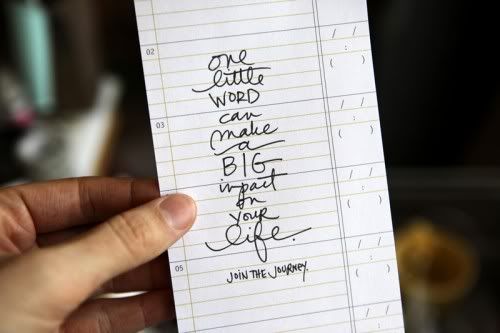 02
03
05
one
little
WORD
can
make
a
BIG
impact
on
your
life.
JOIN THE JOURNEY.
/ /
:
( )
/ /
:
( )
/ /
:
( )
/ /
:
( )